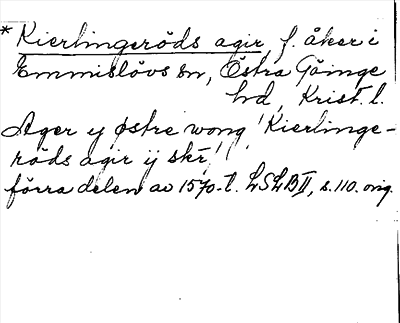 * Kierlingeröds agir, f. åker i
Emmislövs sn, Östra Göinge
hd, Krist. l.
Ager y østre wong 'Kierlinge-
röds agir ij skr,'
förra delen av 1570-t. LSLB II, s. 110. orig.